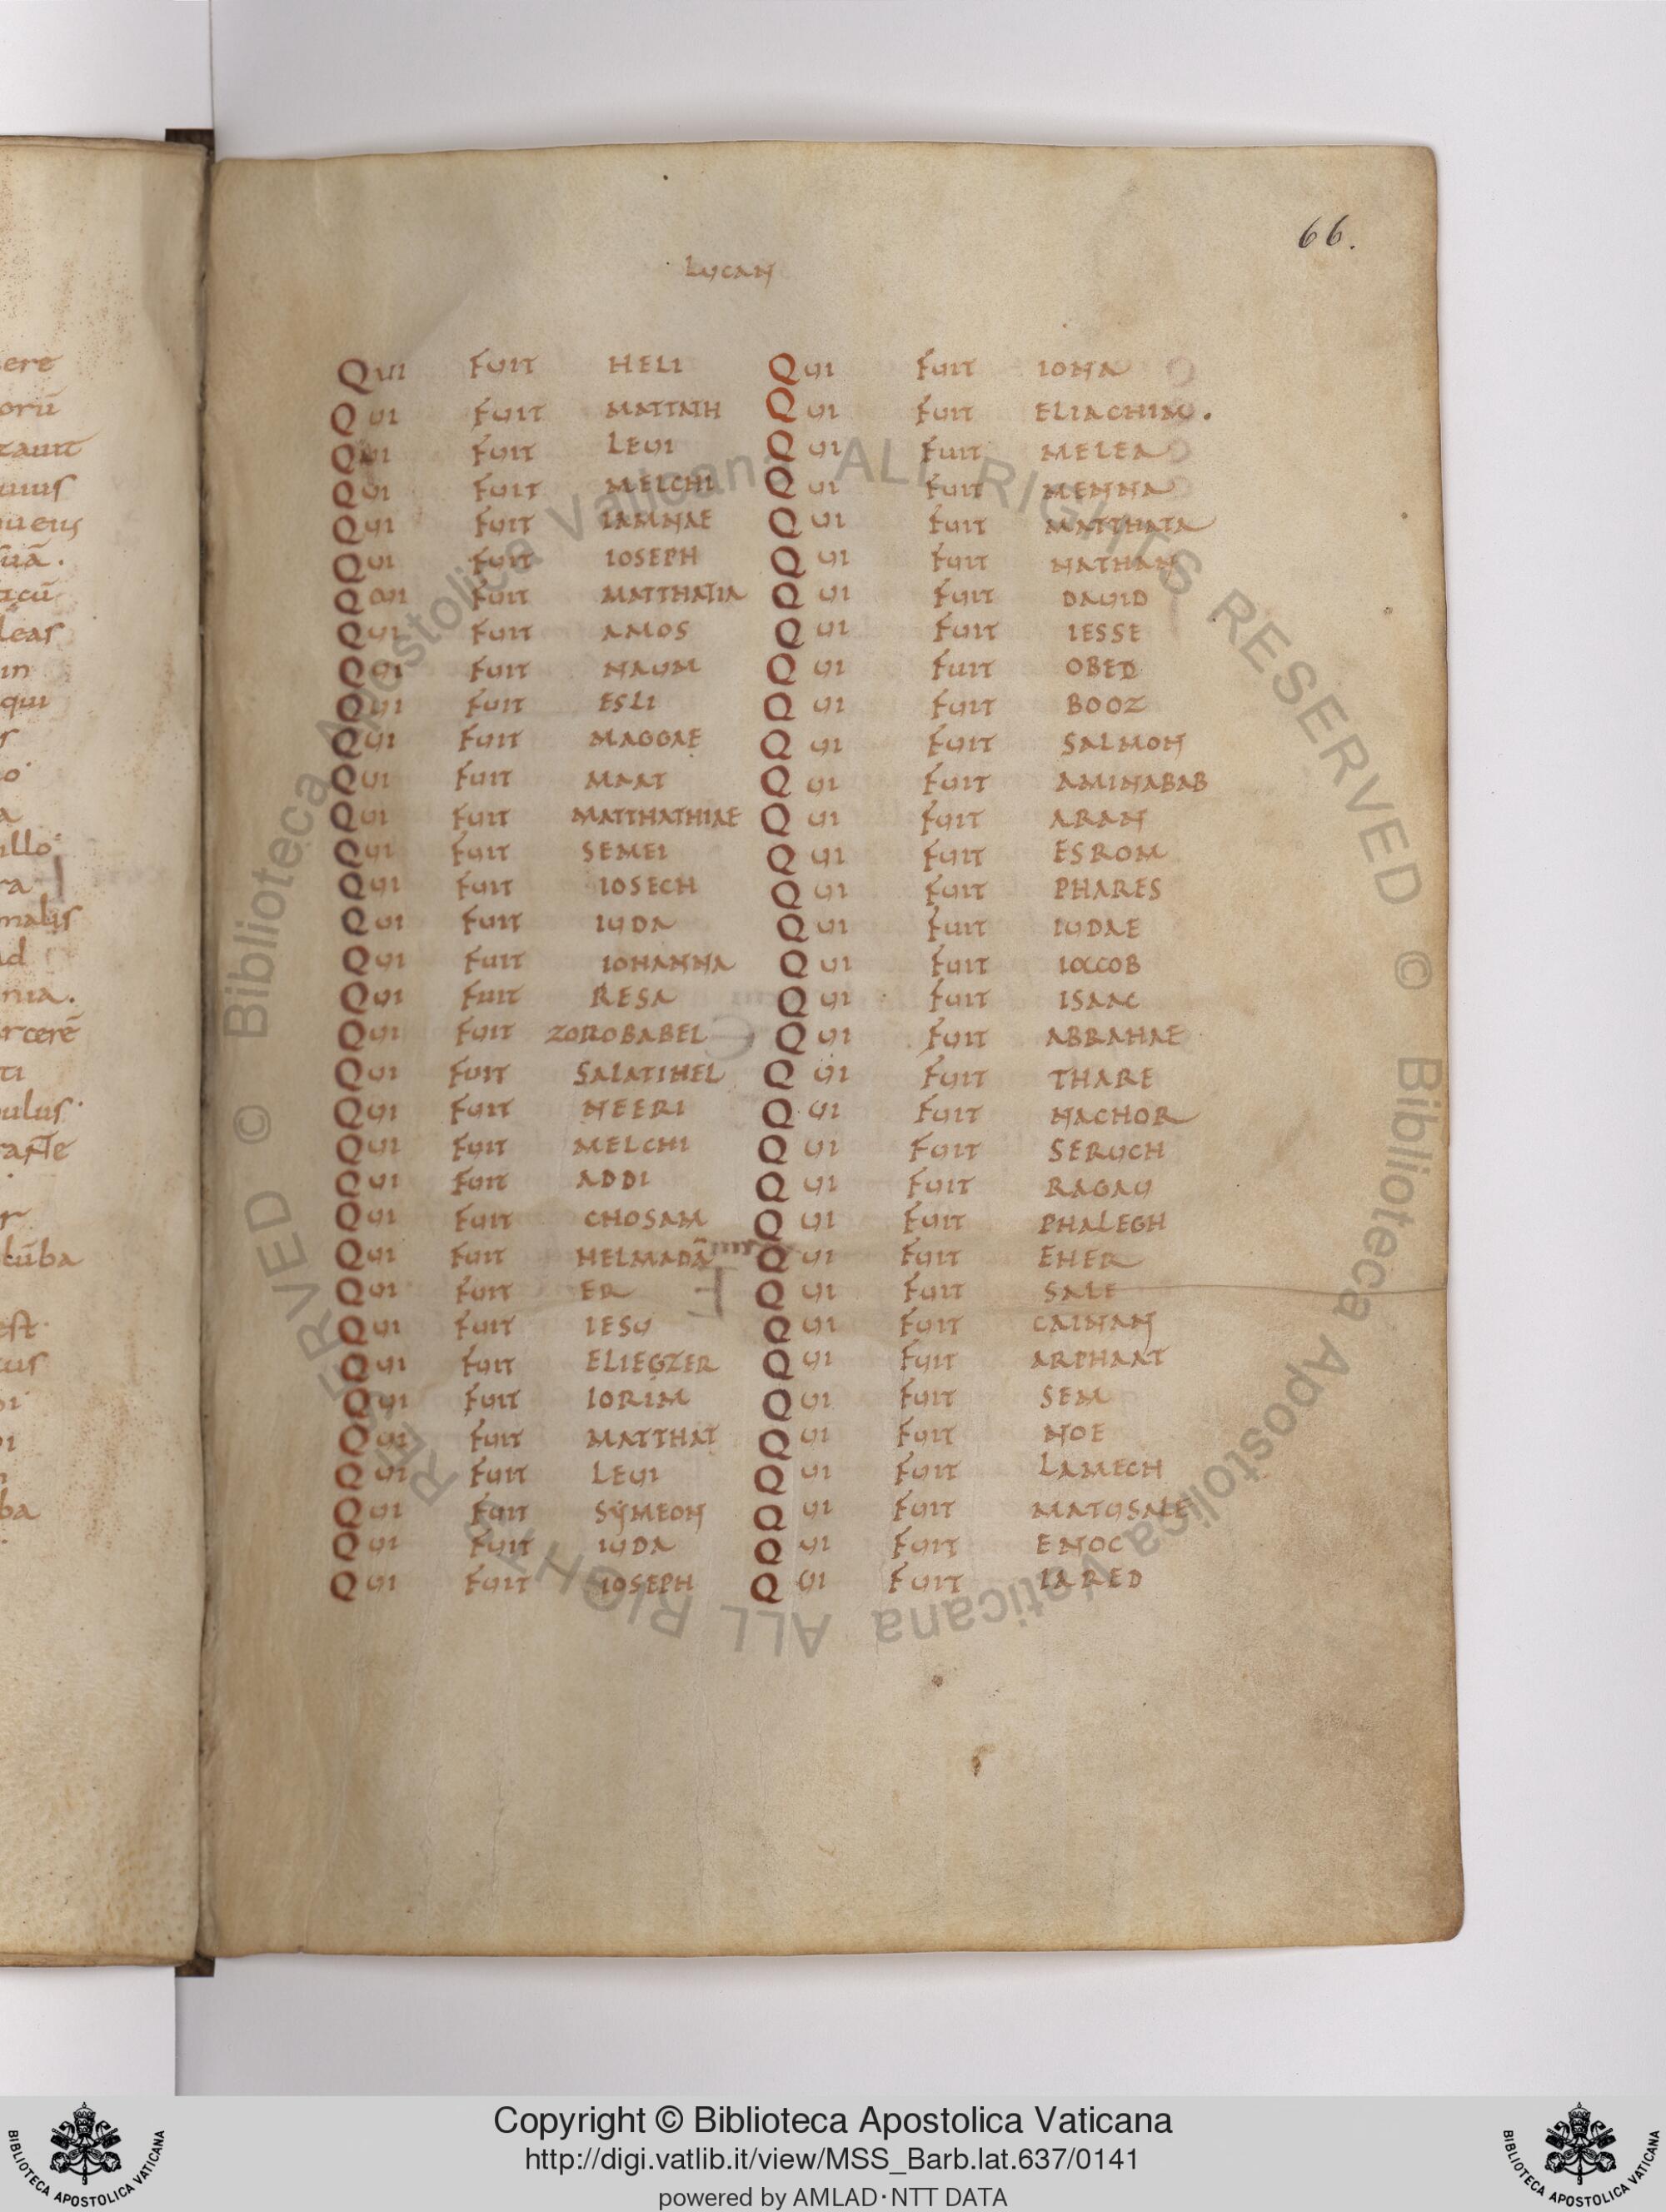 66.
LUCAN
Qui fuit HELI
Qui fuit MATTATH
Qui fuit LEUI
Qui fuit MELCHI
Qui fuit IAMNAE
Qui fuit IOSEPH
Qui fuit MATTHATIA
Qui fuit AMOS
Qui fuit NAUM
Qui fuit ESLI
Qui fuit MAGGAE
Qui fuit MAAT
Qui fuit MATTHATHIAE
Qui fuit SEMEI
Qui fuit IOSECH
Qui fuit IUDA
Qui fuit IOHANNA
Qui fuit RESA
Qui fuit ZOROBABEL
Qui fuit SALATIHEL
Qui fuit NEERI
Qui fuit MELCHI
Qui fuit ADDI
Qui fuit CHOSAM
Qui fuit HELMADĀ
Qui fuit ER
Qui fuit IESU
Qui fuit ELIEGZER
Qui fuit IORIM
Qui fuit MATTHAT
Qui fuit LEUI
Qui fuit SYMEON
Qui fuit IUDA
Qui fuit IOSEPH
Qui fuit IONA
Qui fuit ELIACHIM.
Qui fuit MELEA
Qui fuit MENNA
Qui fuit MATTHATA
Qui fuit NATHAN
Qui fuit DAUID
Qui fuit IESSE
Qui fuit OBED
Qui fuit BOOZ
Qui fuit SALMON
Qui fuit AMINABAB
Qui fuit ARAN
Qui fuit ESROM
Qui fuit PHARES
Qui fuit IUDAE
Qui fuit IACOB
Qui fuit ISAAC
Qui fuit ABRAHAE
Qui fuit THARE
Qui fuit NACHOR
Qui fuit SERUCH
Qui fuit RAGAU
Qui fuit PHALEGH
Qui fuit EHER
Qui fuit SALE
Qui fuit CAINAN
Qui fuit ARPHAAT
Qui fuit SEM
Qui fuit NOE
Qui fuit LAMECH
Qui fuit MATUSALE
Qui fuit ENOC
Qui fuit IARED
Copyright © Biblioteca Apostolica Vaticana
http://digi.vatlib.it/view/MSS_Barb.lat.637/0141
powered by AMLAD·NTT DATA
BIBLIOTECA APOSTOLICA VATICANA
BIBLIOTECA APOSTOLICA VATICANA
© Biblioteca Apostolica Vaticana ALL RIGHTS RESERVED © Biblioteca Apostolica Vaticana ALL RIGHTS RESERVED